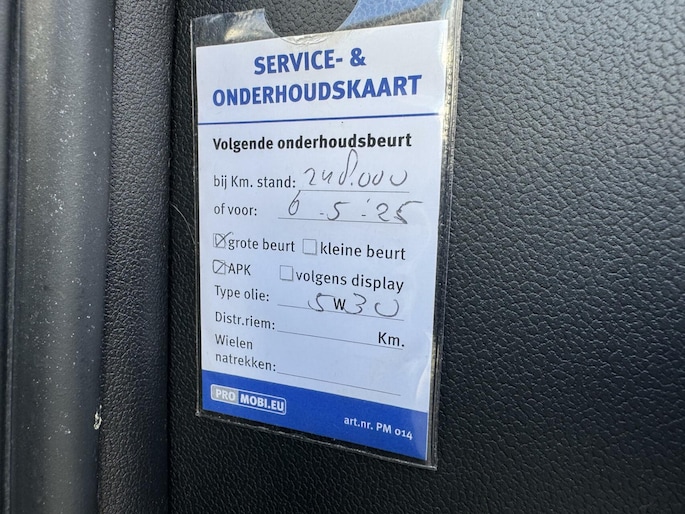 SERVICE- &
ONDERHOUDSKAART
Volgende onderhoudsbeurt
bij Km. stand: 248.000
of voor: 6-5-'25
grote beurt kleine beurt
APK volgens display
Type olie: 5W30
Distr.riem: Km.
Wielen
natrekken:
PRO MOBI.EU
art.nr. PM 014